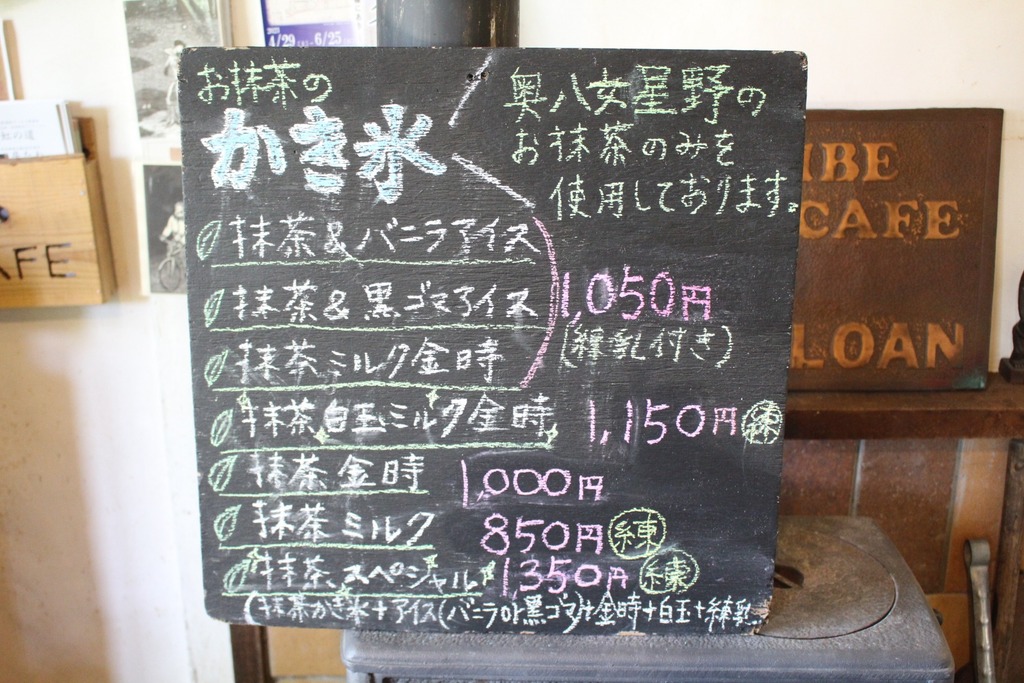 4/29 6/25
お抹茶の
かき氷
奥八女星野の
お抹茶のみを
使用しております。
抹茶&バニラアイス
抹茶&黒ゴマアイス
抹茶ミルク金時
1,050円
(練乳付き)
抹茶白玉ミルク金時 1,150円 練
抹茶金時 1,000円
抹茶ミルク 850円 練
抹茶スペシャル 1,350円 練
(抹茶かき氷+アイス(バニラor黒ゴマ)+金時+白玉+練乳
IBE
CAFE
LOAN
AFE